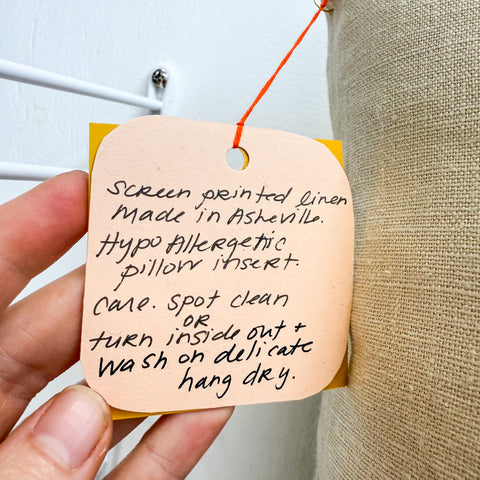 Screen printed linen
Made in Asheville.
Hypo Allergetic
pillow insert.
Care. Spot clean
OR
turn inside out +
Wash on delicate
hang dry.